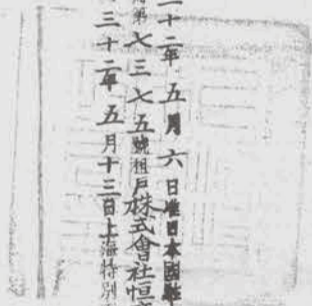 二十二年五月六日准日本國
第七三七五號租戶株式會社恒
三十二年五月十三日上海特別